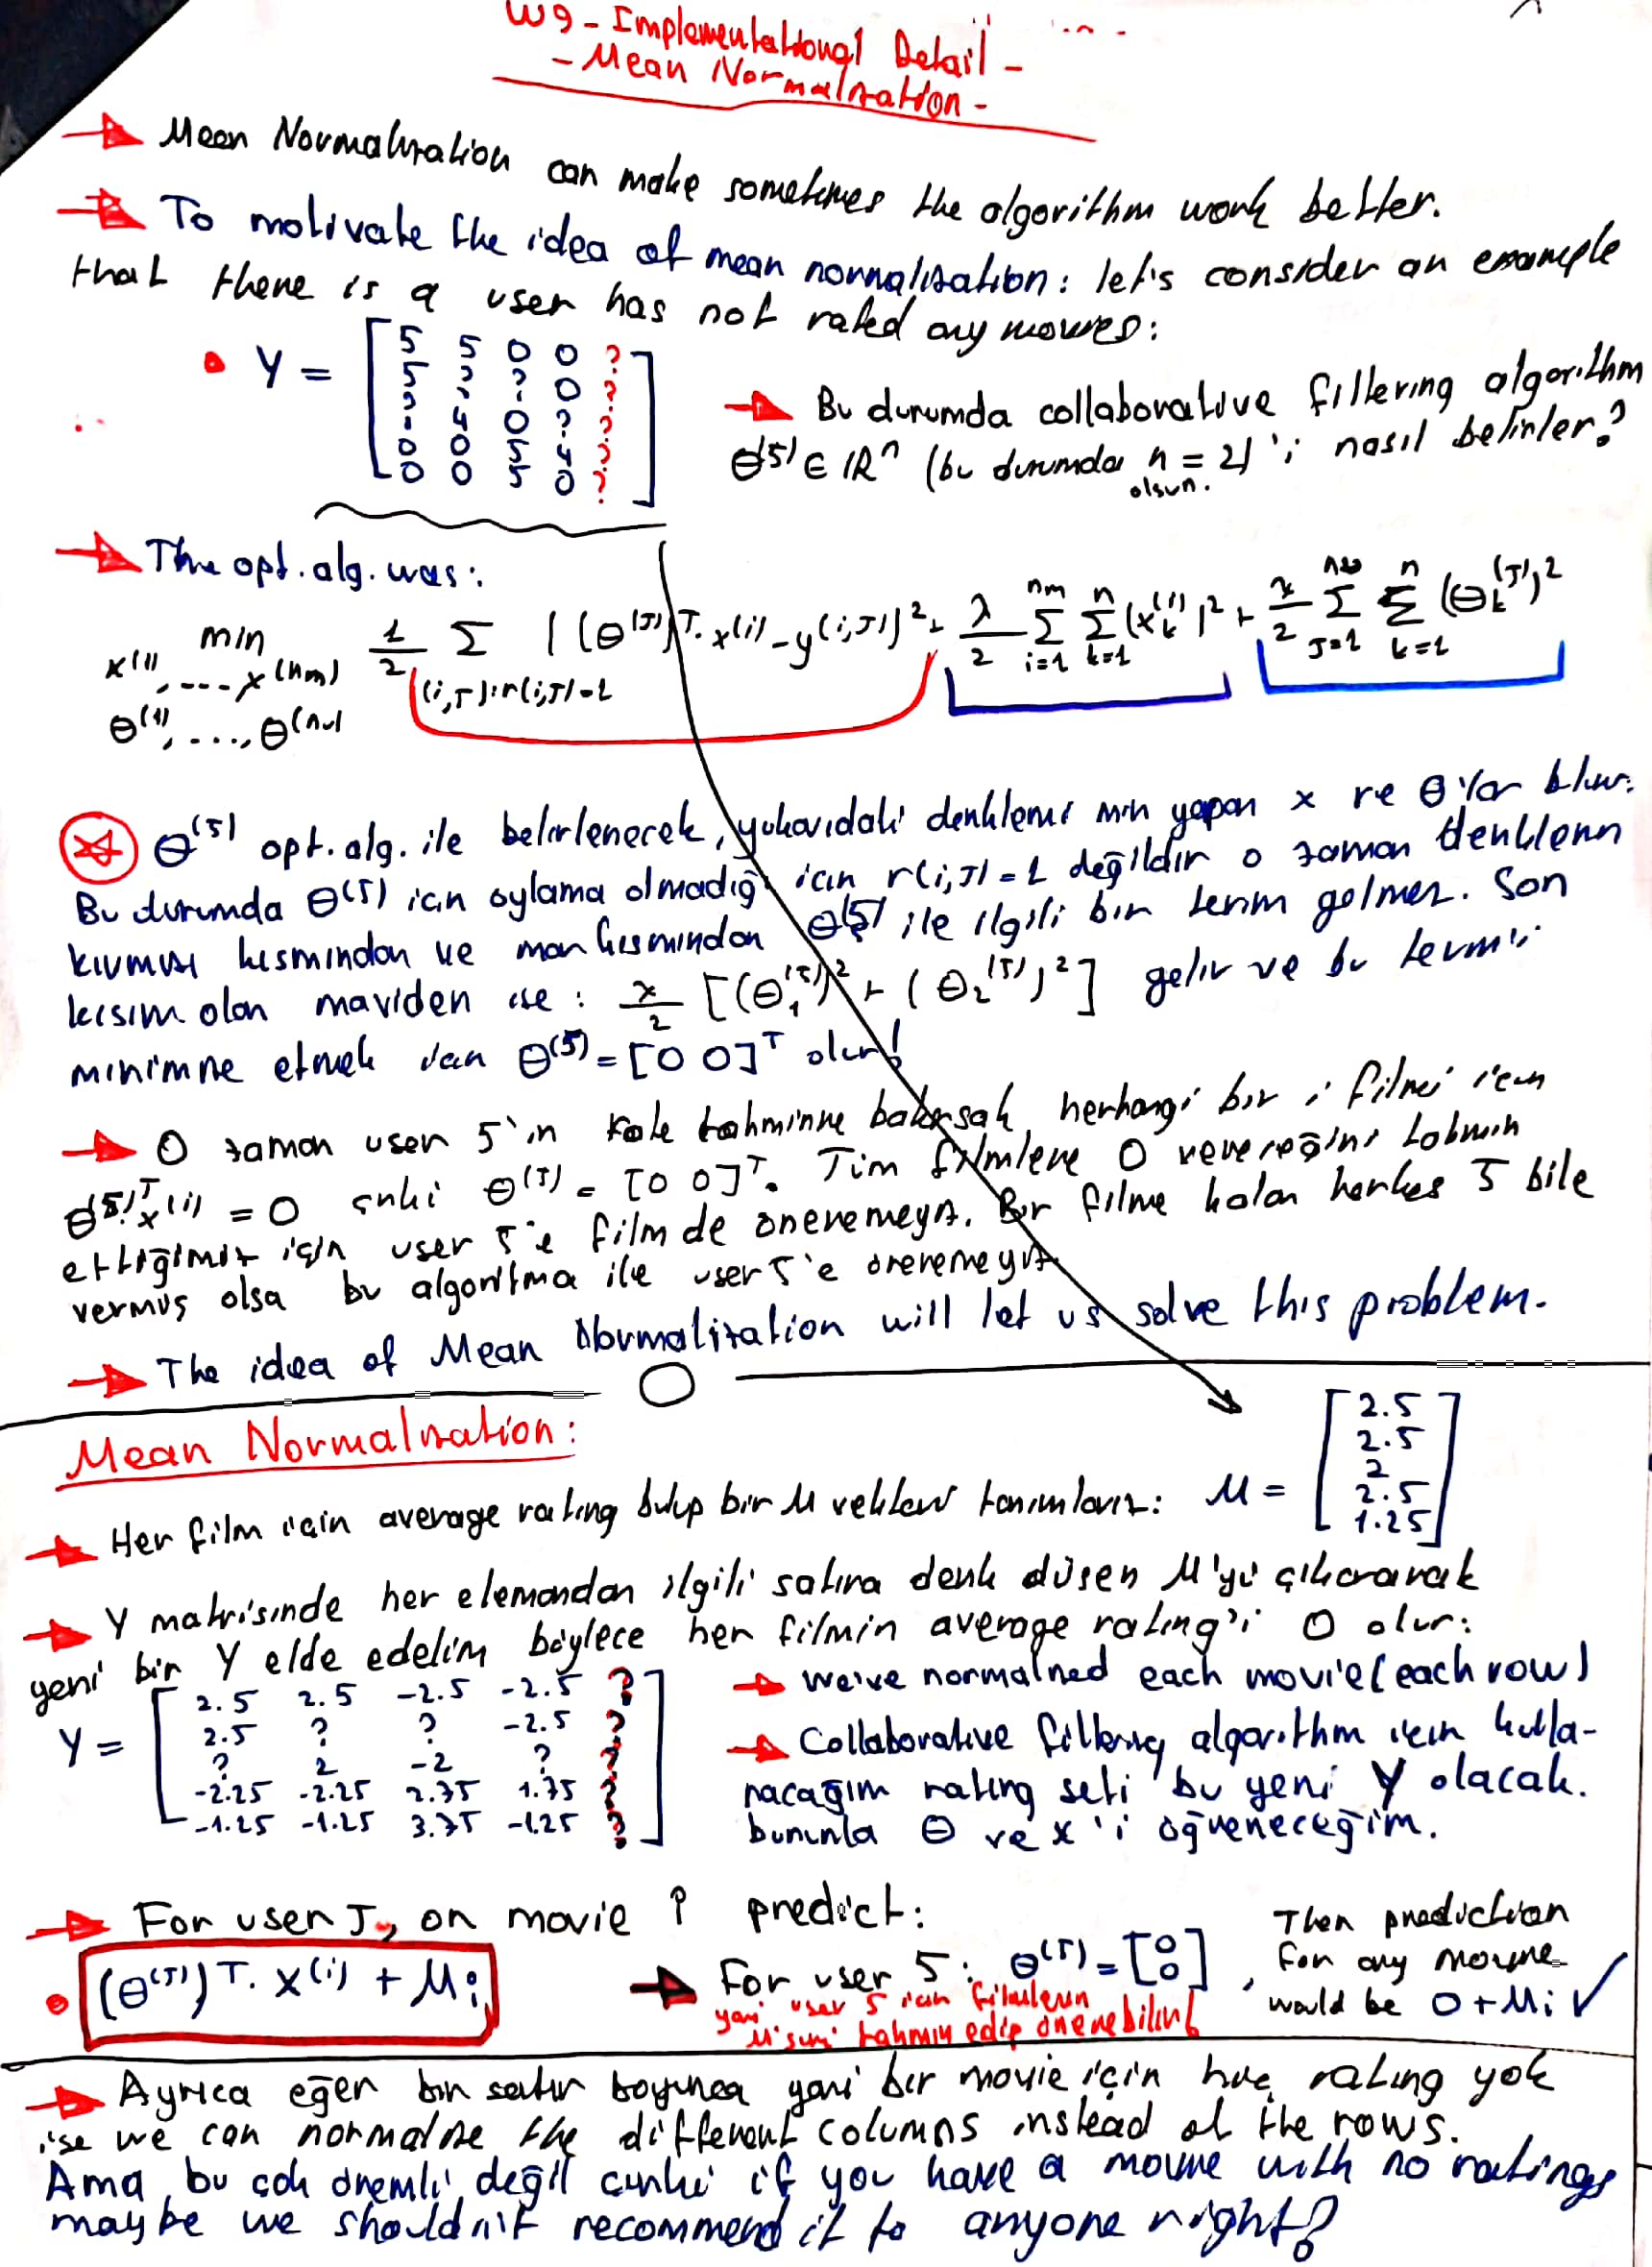 W9 - Implementational Detail -
- Mean Normalization -
→ Mean Normalization can make sometimes the algorithm work better.
→ To motivate the idea of mean normalization: let's consider an example
that there is a user has not rated any movies:
• Y = [ 5 5 0 0 ?
5 ? ? 0 ?
? 4 0 ? ?
0 0 5 4 ?
0 0 5 0 ? ]
→ Bu durumda collaborative filtering algorithm
θ(5) ∈ IR^n (bu durumda n = 2) 'i nasıl belirler?
olsun.
→ The opt. alg. was:
min x(1), ..., x(nm) θ(1), ..., θ(nu) 1/2 Σ (i,J):r(i,J)=1 ((θ(J))T. x(i) - y(i,J))² + λ/2 Σ i=1 nm Σ k=1 n (x k (i))² + λ/2 Σ J=1 nu Σ k=1 n (θ k (J))²
θ(5) opt. alg. ile belirlenecek, yukarıdaki denklemi min yapan x ve θ'lar bulur.
Bu durumda θ(5) için oylama olmadığı için r(i,J) = 1 değildir o zaman denklemin
kırmızı kısmından ve mor kısmından θ(5) ile ilgili bir terim gelmez. Son
kısım olan maviden ise: λ/2 [(θ1(5))² + (θ2(5))²] gelir ve bu termi
minimize etmek için θ(5) = [0 0]T olur!
→ O zaman user 5'in rate tahminine bakarsak, herhangi bir i filmi için
θ(5)T x(i) = 0 çünkü θ(5) = [0 0]T. Tüm filmlere 0 vereceğini tahmin
ettiğimiz için user 5'e film de öneremeyiz. Bir filme kalan herkes 5 bile
vermiş olsa bu algoritma ile user 5'e öneremeyiz.
→ The idea of Mean Normalization will let us solve this problem.
Mean Normalization:
→ Her film için average rating bulup bir M vektörü tanımlarız: M = [ 2.5
2.5
2
2.5
1.25 ]
→ Y matrisinde her elemandan ilgili satıra denk düşen M'yü çıkararak
yeni bir Y elde edelim böylece her filmin average rating'i 0 olur:
Y = [ 2.5 2.5 -2.5 -2.5 ?
2.5 ? ? -2.5 ?
? 2 -2 ? ?
-2.25 -2.25 2.75 1.75 ?
-1.25 -1.25 3.75 -1.25 ? ]
→ We've normalized each movie (each row)
→ Collaborative filtering algorithm için kulla-
nacağım rating seti bu yeni Y olacak.
bununla θ ve x'i öğreneceğim.
→ For user J, on movie i predict:
• (θ(J))T. x(i) + Mi
→ For user 5: θ(5) = [0 0], Then prediction
for any movie
would be 0 + Mi ✓
yani user 5 için filmlerin
M'sini tahmin edip önerebiliriz
→ Ayrıca eğer bir satır boyunca yani bir movie için hiç rating yok
ise we can normalize the different columns instead of the rows.
Ama bu çok önemli değil çünkü if you have a movie with no ratings
maybe we shouldn't recommend it to anyone right?